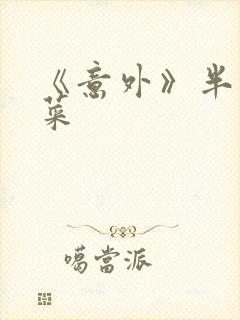 《意外》半
菜
噶當派